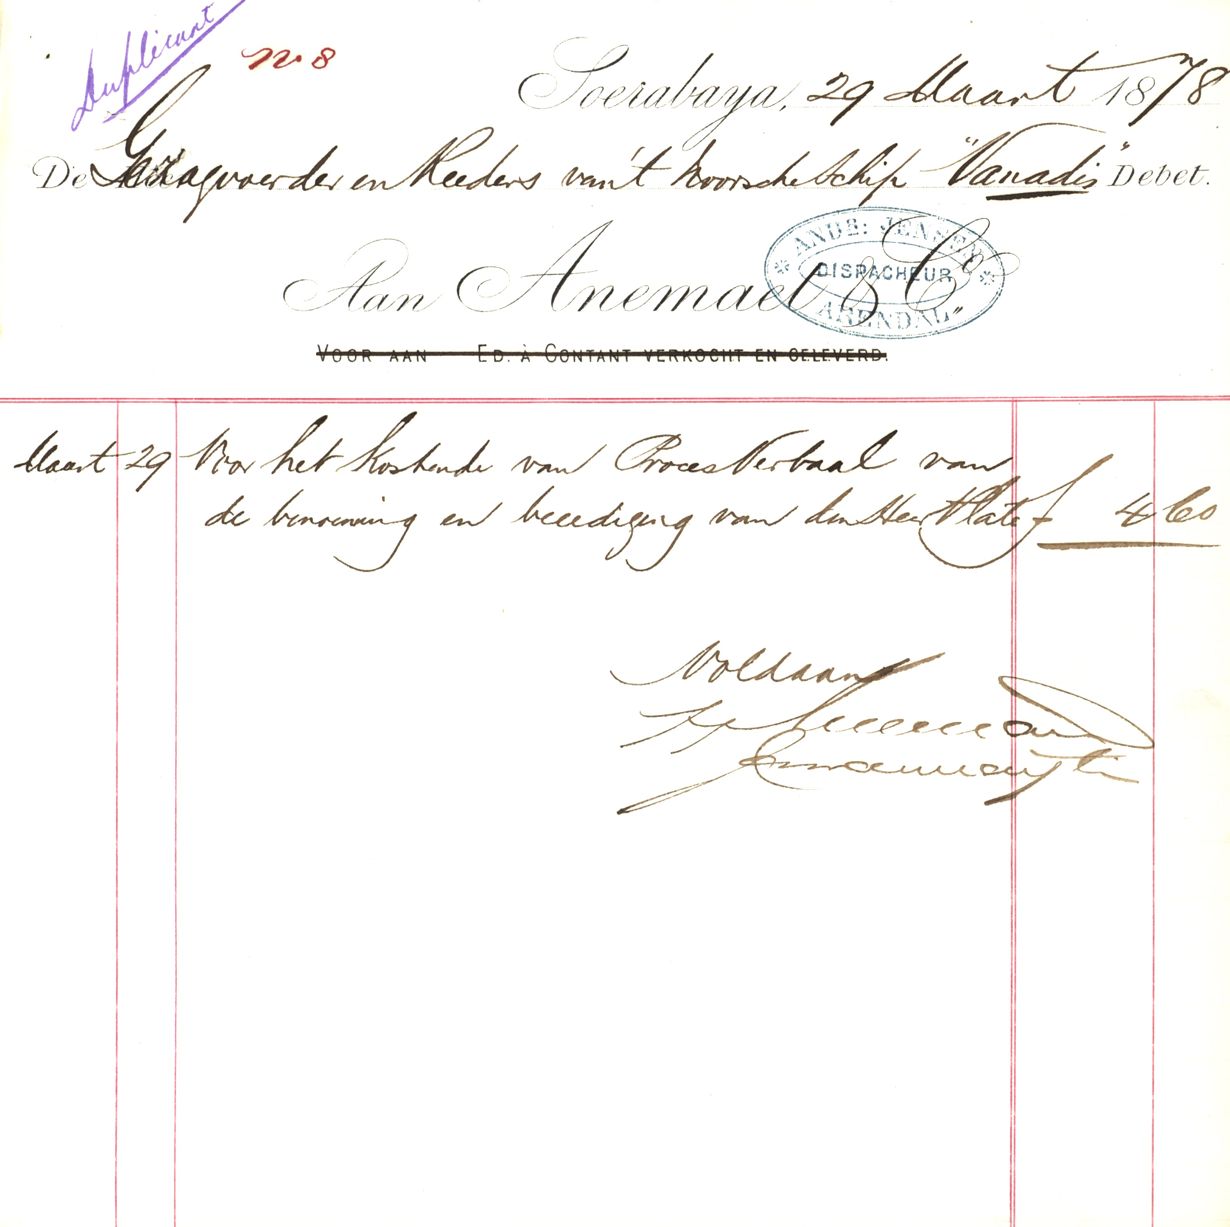 Duplicaat
No 8
Soerabaya, 29 Maart 1878
De Gezagvoerder en Reeders van 't Noorsche Schip "Vanadis" Debet.
Aan Anemaet & Co
ANDR: JENSEN
DISPACHEUR
ARENDAL
VOOR AAN ED. À CONTANT VERKOCHT EN GELEVERD.
Maart 29 Voor het kostende van Proces Verbaal van
de benoeming en beeediging van den Heer Plate f 4 60
Voldaan